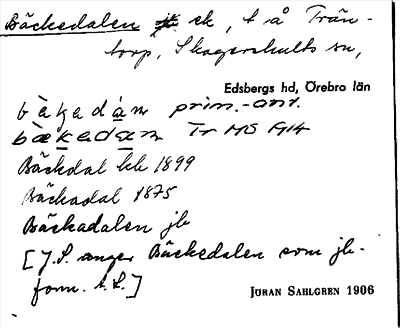 Bäckedalen ek, t å Trän-
torp, Skagershults sn,
Edsbergs hd, Örebro län
prim.-ant.
Tr MS 1914
Bäckdal kk 1899
Bäckadal 1875
Bäckadalen jb
[J.S. anger Bäckedalen som jb-
form. A.L.]
JÖRAN SAHLGREN 1906